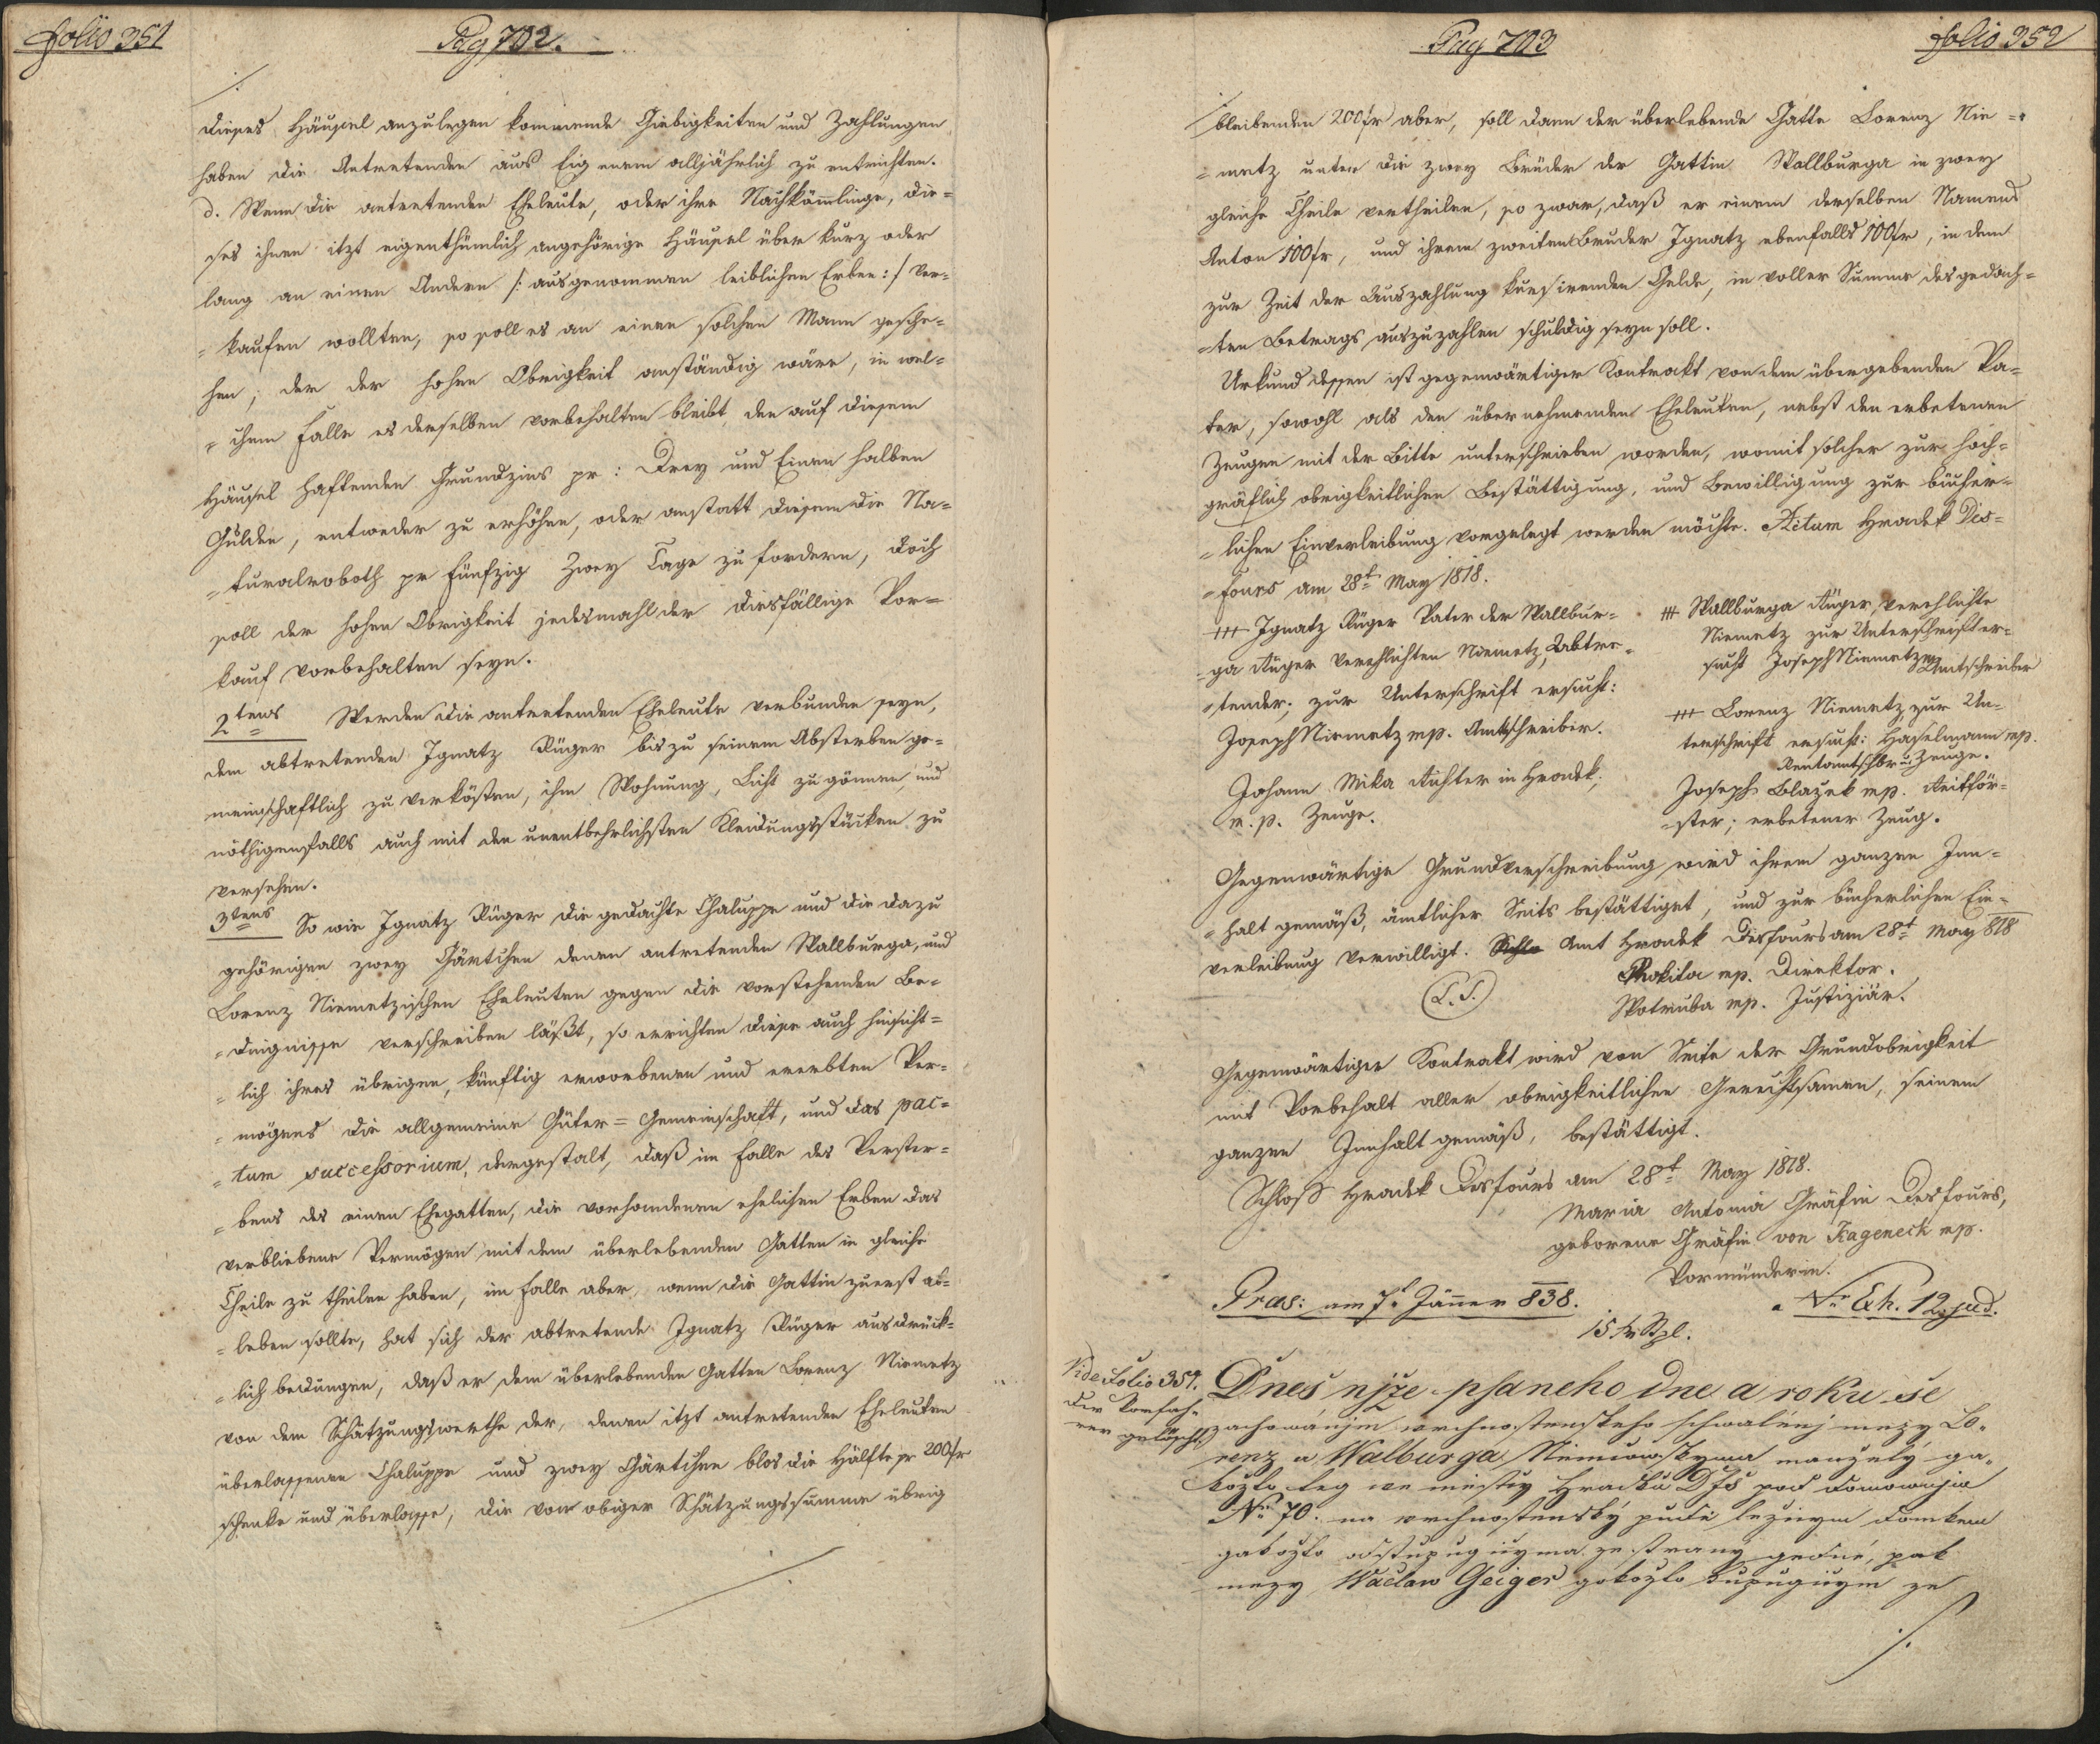 Folio 351
Pag 702.
/.
dieses Häusel anzulegen kommende Giebigkeiten und Zahlungen
haben die Antretenden aus Eigenem alljährlich zu entrichten.
d. Wenn die antretenden Eheleute, oder ihre Nachkömmlinge, die=
ses ihnen itzt eigenthümlich angehörige Häusel über kurz oder
lang an einen Andern /: ausgenommen leiblichen Erben :/ ver=
=kaufen wollten, so soll es an einen solchen Mann gesche=
hen, der der hohen Obrigkeit anständig wäre, in wel=
=chem Falle es derselben vorbehalten bleibt, den auf diesem
Häusel haftenden Grundzins pr: Drey und Einen halben
Gulden, entweder zu erhöhen, oder anstatt diesem die Na=
=turalroboth pr Fünfzig Zwey Tage zu fordern, doch
soll der hohen Obrigkeit jedesmahl der diesfällige Vor=
kauf vorbehalten seyn.
2tens Werden die antretenden Eheleute verbunden seyn,
dem abtretenden Ignatz Rüger bis zu seinem Absterben ge=
meinschaftlich zu verkösten, ihm Wohnung, Licht zu gönnen, und
nöthigenfalls auch mit den unentbehrlichsten Kleidungsstücken zu
versehen.
3tens So wie Ignatz Rüger die gedachte Chaluppe und die dazu
gehörigen zwey Gärtchen denen antretenden Wallburga, und
Lorenz Niemetzischen Eheleuten gegen die vorstehenden Be=
=dingnisse verschreiben läßt, so errichten diese auch hinsicht=
=lich ihres übrigen, künftig erworbenen und ererbten Ver=
=mögens die allgemeine Güter=Gemeinschaft, und das pac=
=tum successorium, dergestalt, daß im Falle des Verster=
=bens des einen Ehegatten, die vorhandenen ehelichen Erben das
verbliebene Vermögen mit dem überlebenden Gatten in gleiche
Theile zu theilen haben, im Falle aber, wenn die Gattin zuerst ab=
=leben sollte, hat sich der abtretende Ignatz Rüger ausdrück=
=lich bedungen, daß er dem überlebenden Gatten Lorenz Niemetz
von dem Schätzungswerthe der, denen itzt antretenden Eheleuten
überlassenen Chaluppe und zwey Gärtchen blos die Hälfte pr 200 fr
schenke und überlasse, die von obiger Schätzungssumme übrig
/.
Pag 703
Folio 352
/.
bleibenden 200 fr aber, soll dann der überlebende Gatte Lorenz Nie=
=metz unter die zwey Brüder der Gattin Wallburga in zwey
gleiche Theile vertheilen, so zwar, daß er einem derselben Namens
Anton 100 fr, und ihrem zweiten Bruder Ignatz ebenfalls 100 fr, in dem
zur Zeit der Auszahlung kursirenden Gelde, in voller Summe des gedach=
=ten Betrags auszuzahlen schuldig seyn soll.
Urkund dessen ist gegenwärtiger Kontrakt von dem übergebenden Va=
ter, sowohl als den übernehmenden Eheleuten, nebst den erbetenen
Zeugen mit der Bitte unterschrieben worden, womit solcher zur hoch=
gräflich obrigkeitlichen Bestättigung, und Bewilligung zur bücher=
=lichen Einverleibung vorgelegt werden möchte. Actum Hradek Des=
=fours am 28t May 1818.
+++ Ignatz Rüger Vater der Wallbur=
=ga Rüger verehlichten Niemetz, Abtre=
=tender; zur Unterschrift ersucht:
Joseph Niemetz mp. Amtschreiber.
Johann Mika Richter in Hradek,
m. p. Zeuge.
+++ Wallburga Rüger, verehlichte
Niemetz zur Unterschrift er=
sucht Joseph Niemetz mp Amtschreiber
+++ Lorenz Niemetz, zur Un=
terschrift ersucht: Haselmann mp.
Rentamtschbr u. Zeuge.
Joseph Blažek mp. Reitför=
=ster; erbetener Zeug.
Gegenwärtige Grundverschreibung wird ihrem ganzen Inn=
=halt gemäß, ämtlicher Seits bestättiget, und zur bücherlichen Ein=
verleibung verwilligt. Amt Hradek Desfours am 28t May 818
(L.S.)
Prokita mp. Direktor.
Wotruba mp. Justiziär.
Gegenwärtiger Kontrakt wird von Seite der Grundobrigkeit
mit Vorbehalt aller obrigkeitlichen Gerechtsamen, seinem
ganzen Innhalt gemäß, bestättigt.
Schloß Hradek Desfours am 28t May 1818.
Maria Antonia Gräfin Desfours,
geborene Gräfin von Kageneck mp.
Vormünderin.
Pras: am 7t Jänner 838.
Nr Exh. 12 jud.
15 kr Stpl.
Vide Folio 359.
die Vorfah=
rer gelöscht
Dneš njže psaneho dne a roku se
zachowánjm wrchnostenskeho schwálenj mezy Lo=
renz a Walburga Niemcowskyma manzely ga=
kožto teg we městiy Hradku Dfs pod domownjm
Nr 70. na wrchnostenský pudě ležicym domkem
gakožto odstupugicyma ze strany gedné, pak
mezy Wáclaw Geiger gakožto kupugicym ze
/.